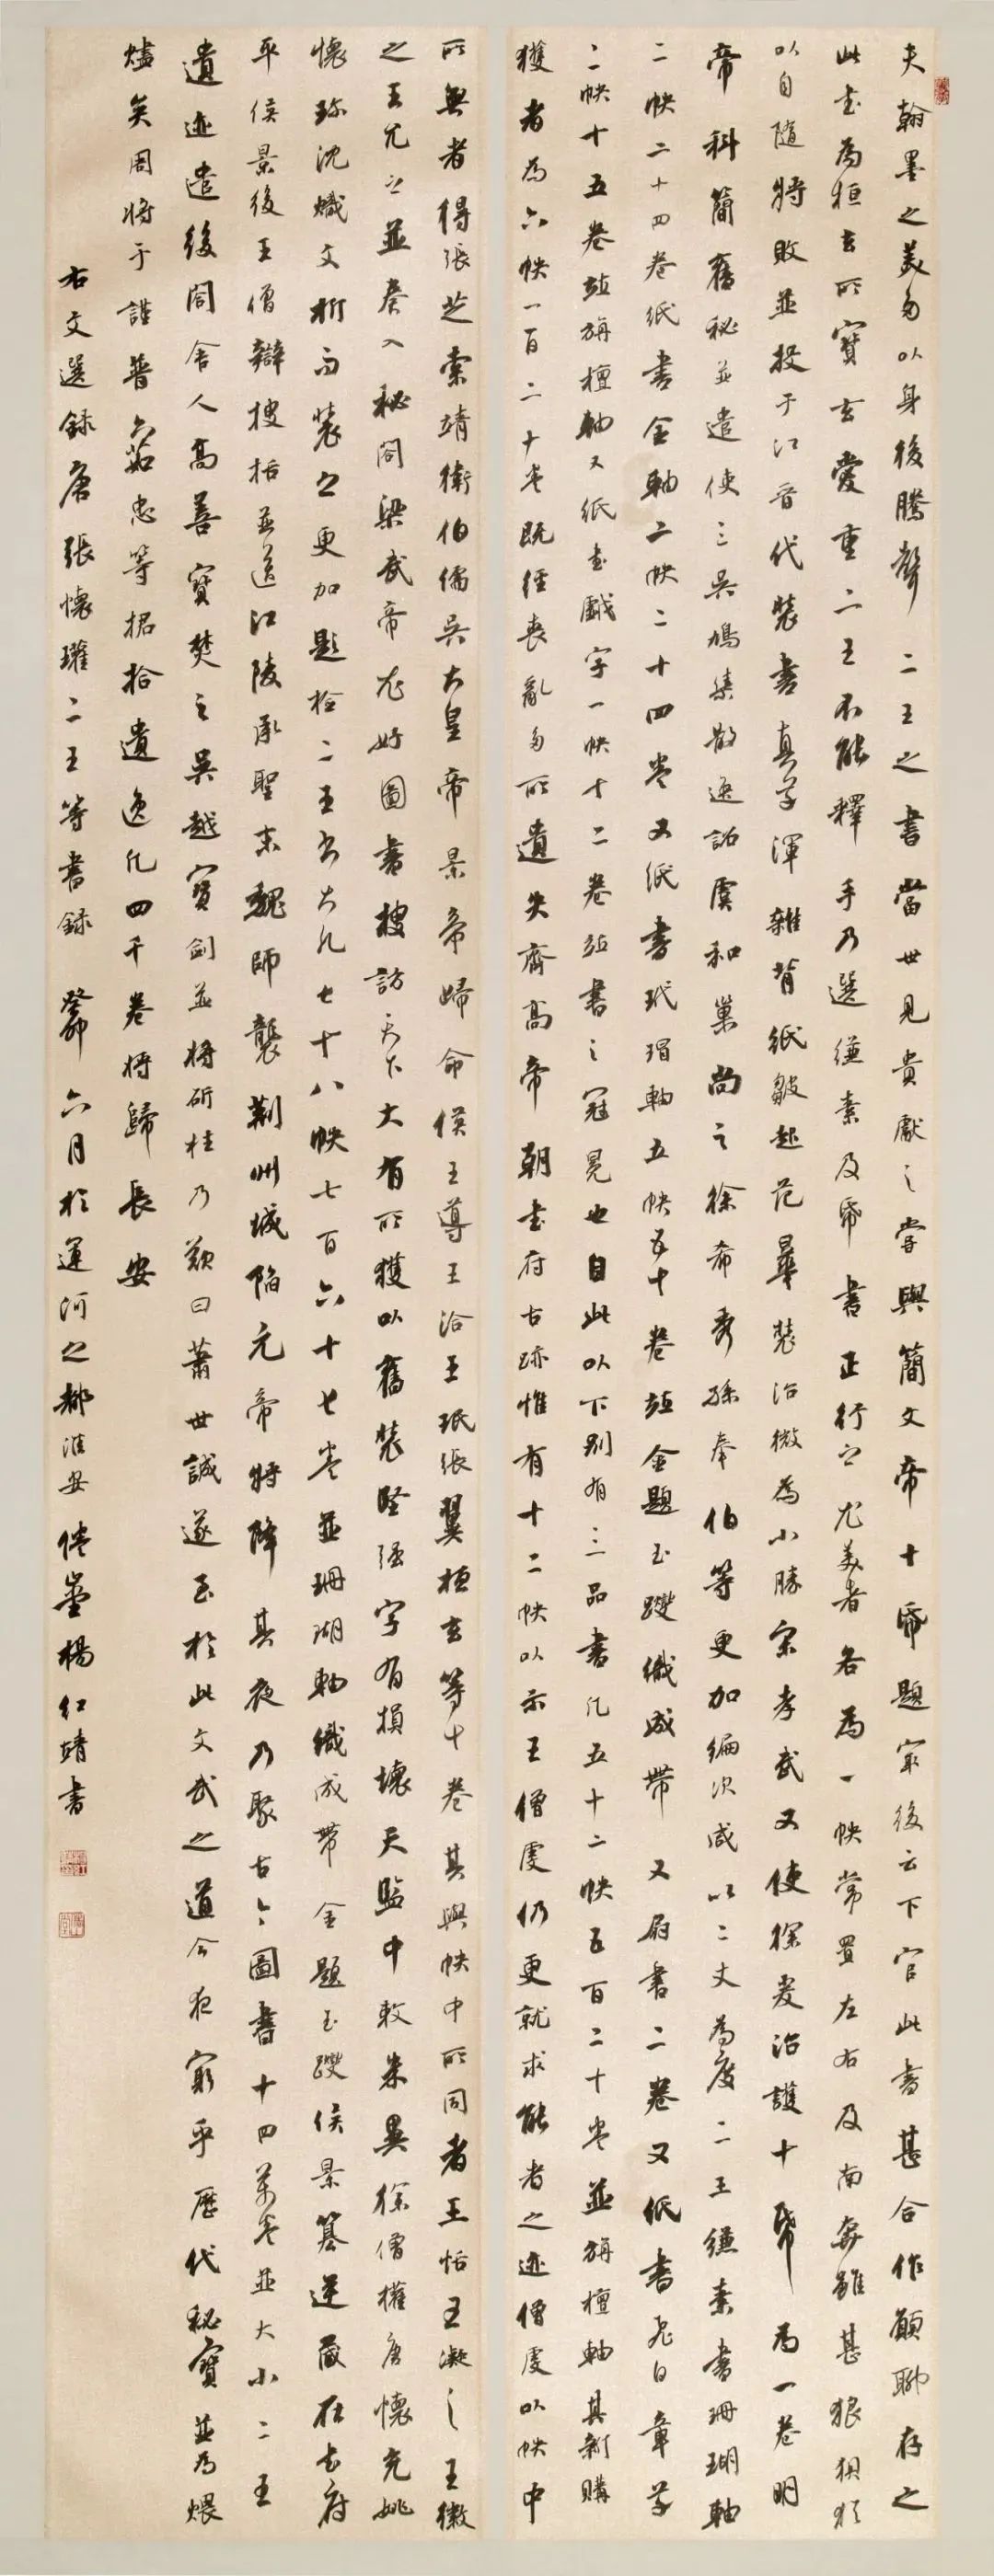 夫翰墨之美多以身後騰聲二王之書當世見貴獻之嘗與簡文帝十紙題最後云下官此書甚合作願聊存之
此書為桓玄所寶玄愛重二王不能釋手乃選縑素及紙書正行之尤美者各為一帙常置左右及南奔雖甚狼狽猶
以自隨將敗並投于江晉代裝書真草渾雜背紙皺起范曄裝治微為小勝宋孝武又使徐爰治護十紙為一卷明
帝科簡舊秘並遣使三吳鳩集散逸詔虞和巢尚之徐希秀孫奉伯等更加編次咸以二丈為度二王縑素書珊瑚軸
二帙二十四卷紙書金軸二帙二十四卷又紙書玳瑁軸五帙五十卷並金題玉躞織成帶又扇書二卷又紙書飛白章草
二帙十五卷並旃檀軸又紙書戲字一帙十二卷並書之冠冕也自此以下別有三品書凡五十二帙五百二十卷並旃檀軸其新購
獲者為六帙一百二十卷既經喪亂多所遺失齊高帝朝書府古跡惟有十二帙以示王僧虔仍更就求能者之迹僧虔以帙中
所無者得張芝索靖衛伯儒吳大皇帝景帝歸命侯王導王洽王珉張翼桓玄等十卷其與帙中所同者王恬王凝之王徽
之王允之並奏入秘閣梁武帝尤好圖書搜訪天下大有所獲以舊裝堅強字有損壞天監中敕朱異徐僧權唐懷充姚
懷珍沈熾文析而裝之更加題檢二王書大凡七十八帙七百六十七卷並珊瑚軸織成帶金題玉躞侯景篡逆藏在書府
平侯景後王僧辯搜括並送江陵承聖末魏師襲荊州城陷元帝將降其夜乃聚古今圖書十四萬卷並大小二王
遺迹遣後閣舍人高善寶焚之吳越寶劍並將斫柱乃歎曰蕭世誠遂至於此文武之道今夜窮乎歷代秘寶並為煨
燼矣周將于謹普六茹忠等捃拾遺逸凡四千卷將歸長安
右文選錄唐張懷瓘二王等書錄 癸卯六月於運河之都淮安 倦壘楊紅靖書